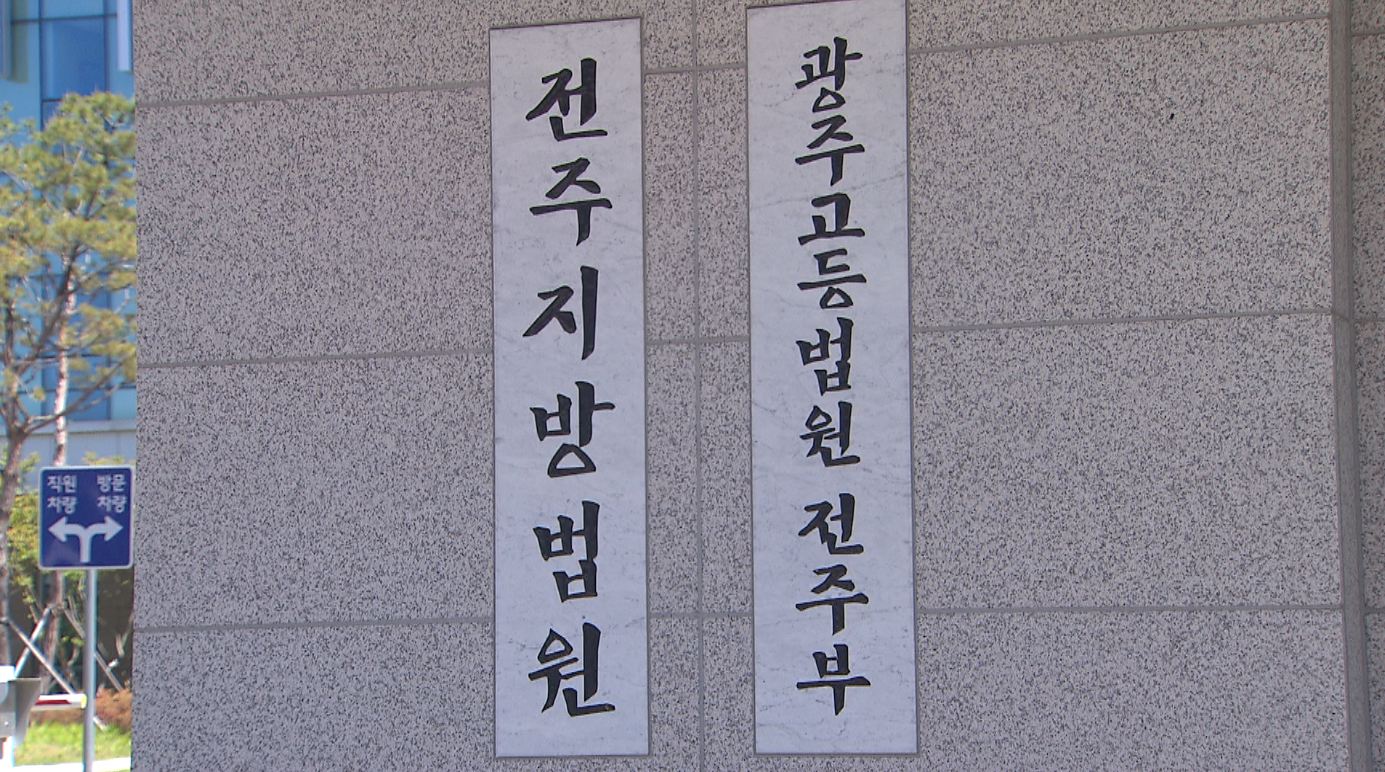 전주지방법원
광주고등법원 전주부
직원 방문
차량 차량